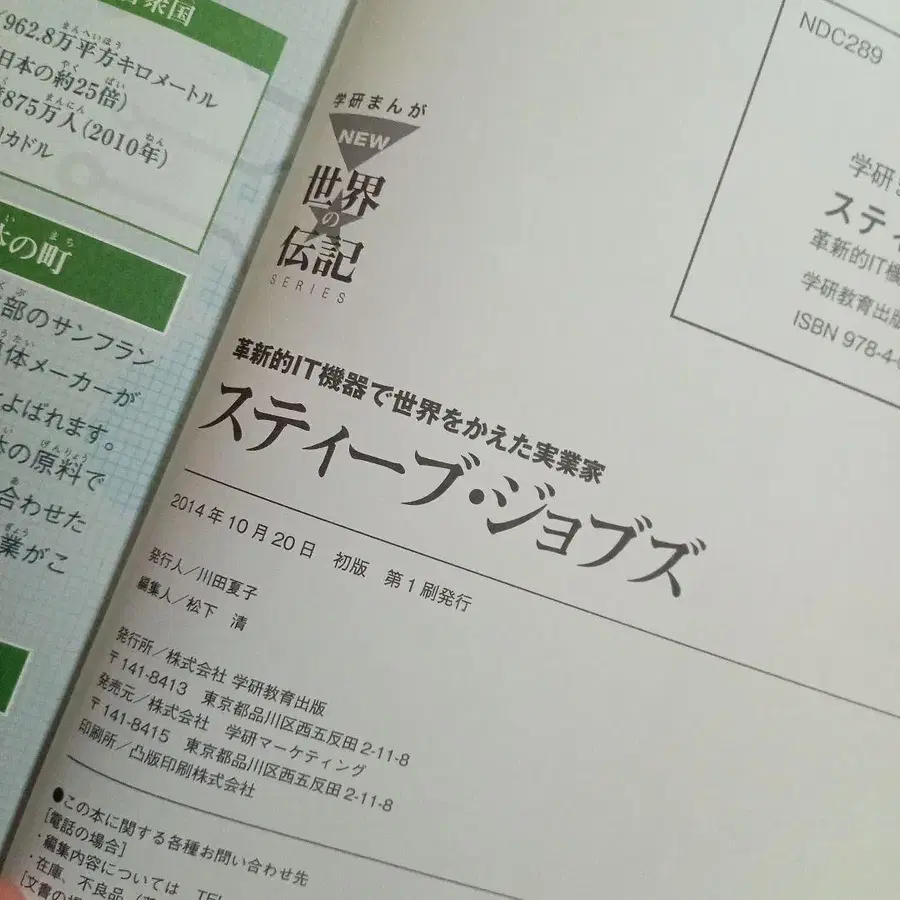 衆国
962.8万平方キロメートル
日本の約25倍)
875万人(2010年)
カドル
の町
部のサンフラン
体メーカーが
よばれます。
の原料で
合わせた
業がこ
学研まんが
NEW
世界
の
伝記
SERIES
革新的IT機器で世界をかえた実業家
スティーブ・ジョブズ
2014年10月20日 初版 第1刷発行
発行人/川田夏子
編集人/松下 清
発行所/株式会社 学研教育出版
〒141-8413 東京都品川区西五反田2-11-8
発売元/株式会社 学研マーケティング
〒141-8415 東京都品川区西五反田2-11-8
印刷所/凸版印刷株式会社
●この本に関する各種お問い合わせ先
[電話の場合]
・編集内容については TEL
・在庫、不良品
[文書の場
NDC289
学研
スティ
革新的IT機
学研教育出版
ISBN 978-4-